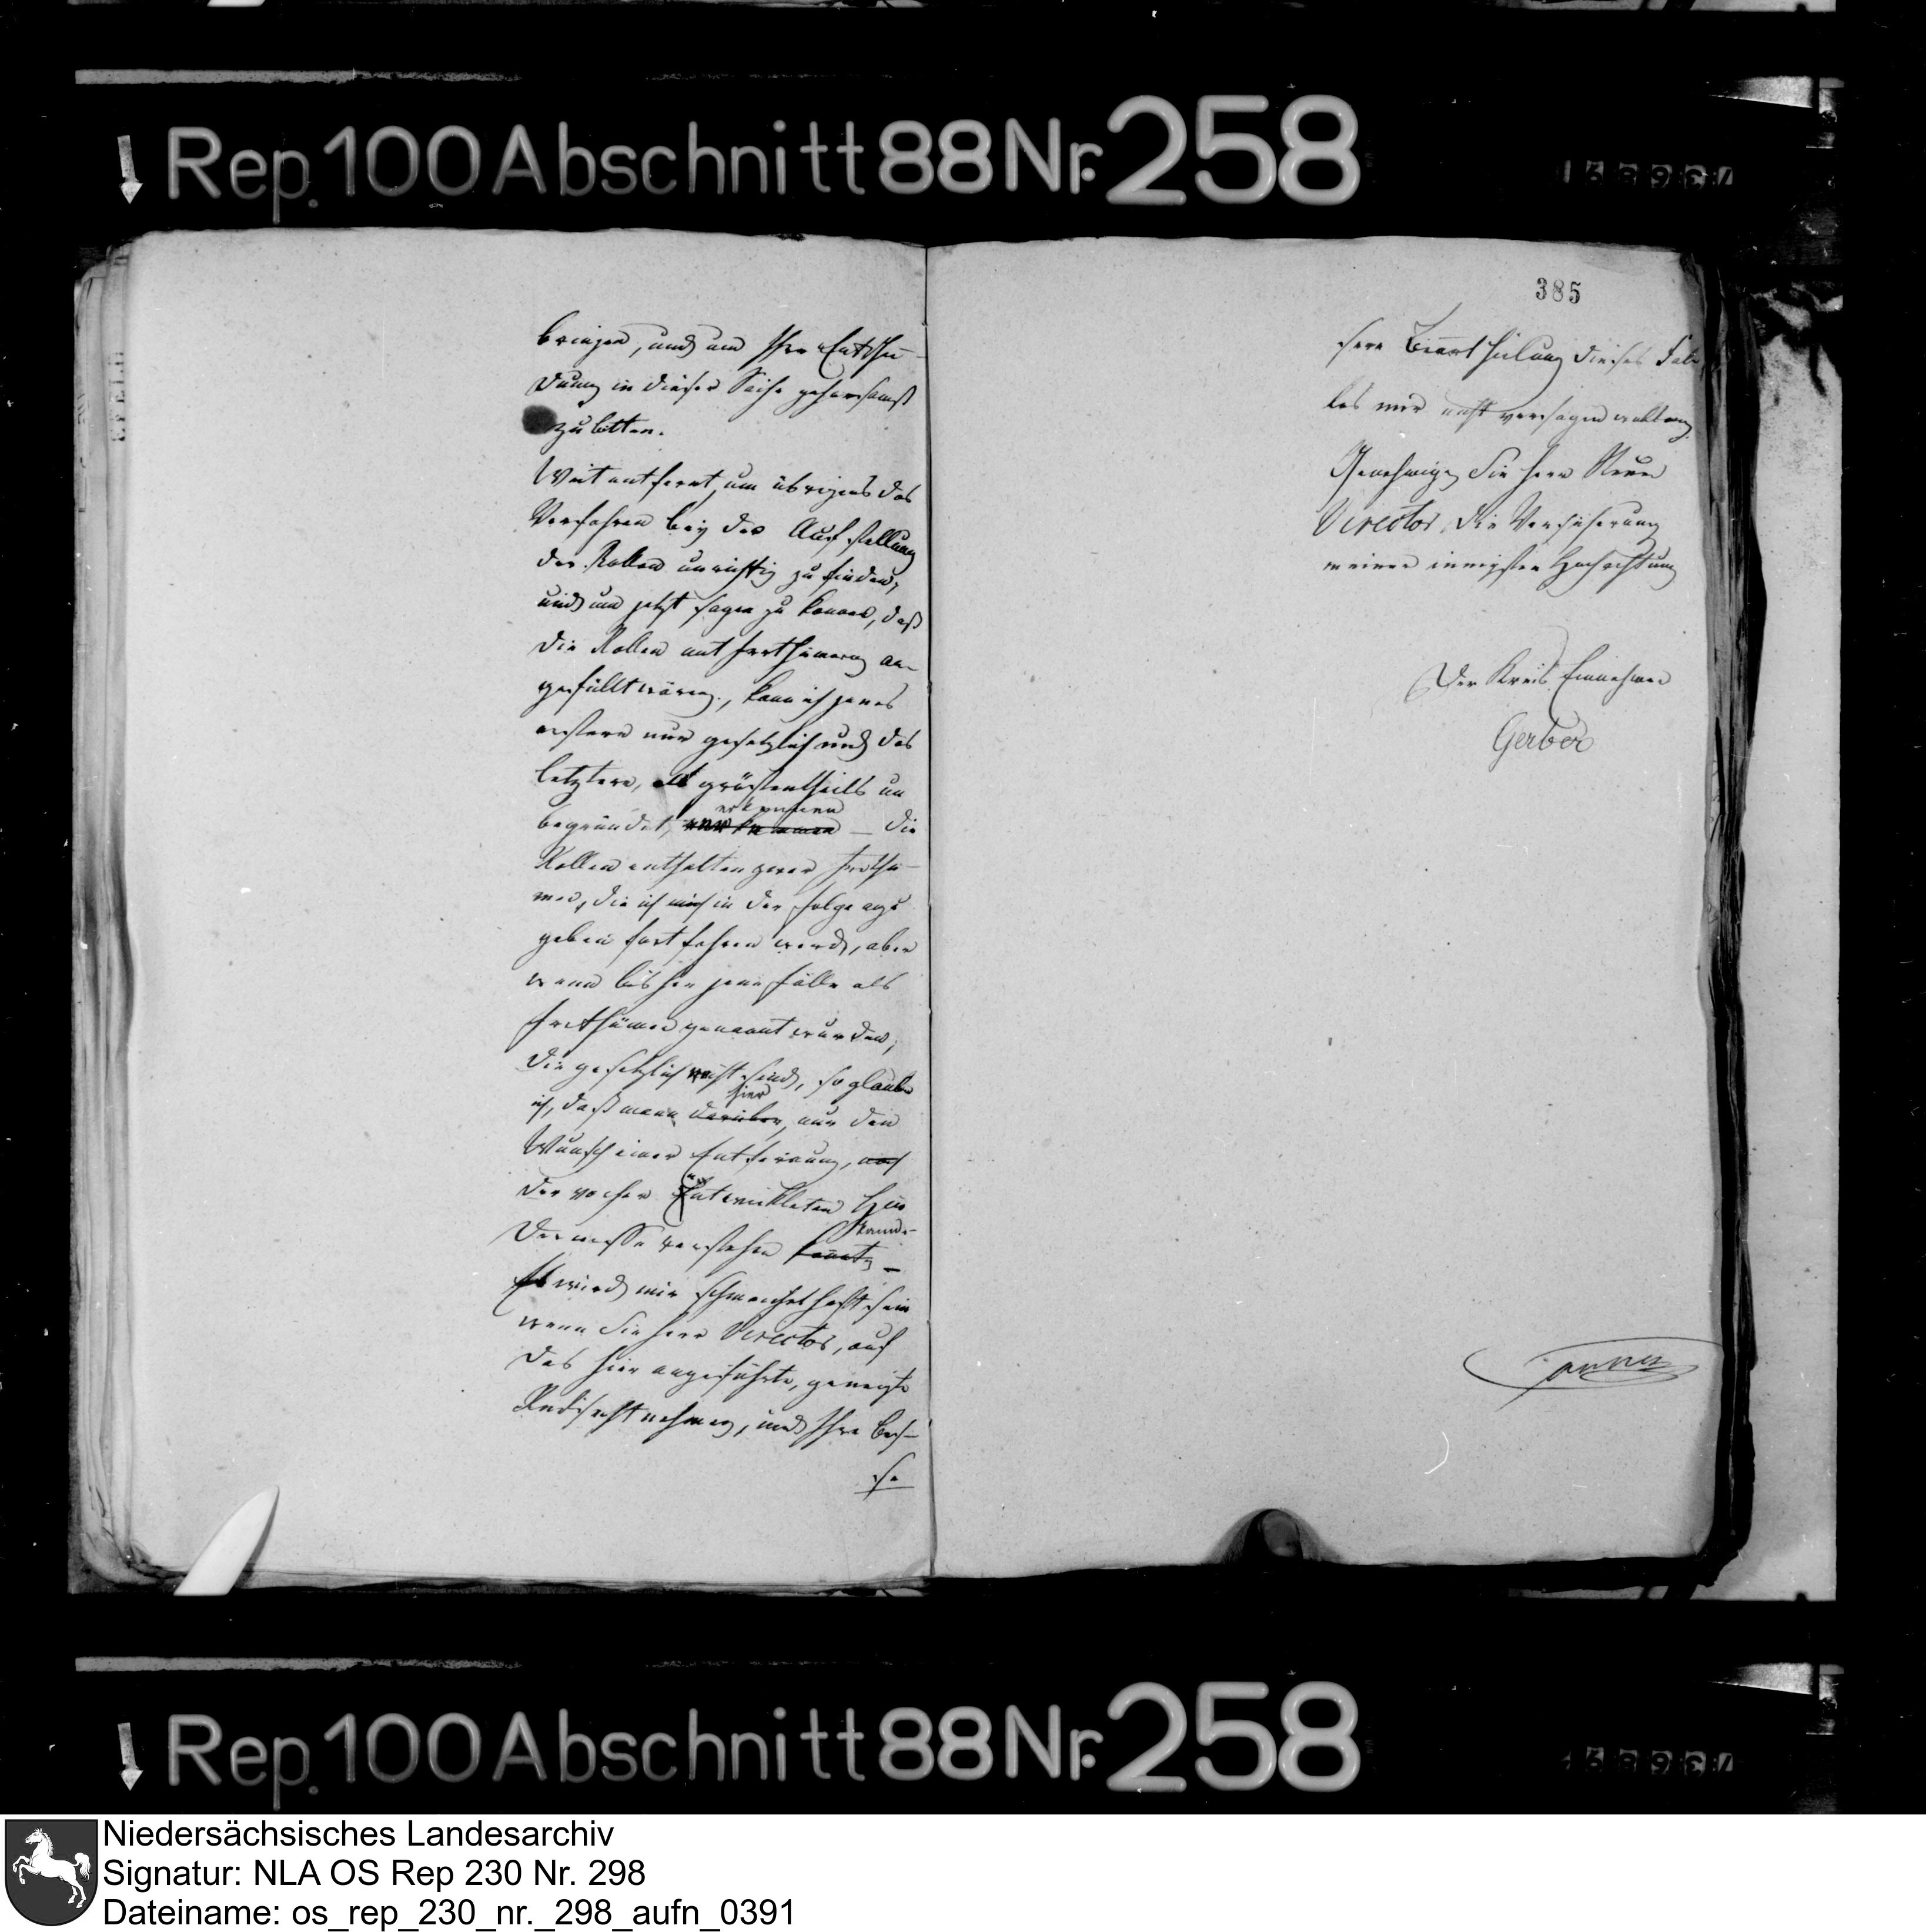 Rep. 100 Abschnitt 88 Nr. 258
385
bringen, und um Ihre Entschei-
dung in dieser Sache gehorsamst
zu bitten.
Weit entfernt, um übrigens das
Verfahren bey der Aufstellung
der Rollen unrichtig zu finden,
und um jetzt sagen zu können, daß
die Rollen mit Irrthümern an-
gefüllt wären, kann ich jenes
erstere nur gesetzlich und das
letztere, als größtentheils un
begründet, erkennen — die
Rollen enthalten zwar Irrthü-
mer, die ich mich in der Folge
geben fortfahren werde, aber
wenn bisher jene Fälle als
Irrthümer genannt wurden,
die gesetzlich nicht sind, so glaube
ich, daß man hier, nur den
Wunsch einer Entfernung,
der vorher entwickelten Hin
dernisse verstehen könnte
Es wird mir schmeichelhaft sein
wenn Sie Herr Director, auf
das hier angeführte, geneigte
Rücksicht nehmen, und Ihre bes-
se
sere Beurtheilung dieses Fal-
les mir nicht versagen wollten
Genehmigen Sie Herr
Director, die Versicherung
meiner innigsten Hochachtung
Der Kreis Einnehmer
Gerber
Rep. 100 Abschnitt 88 Nr. 258
Niedersächsisches Landesarchiv
Signatur: NLA OS Rep 230 Nr. 298
Dateiname: os_rep_230_nr._298_aufn_0391